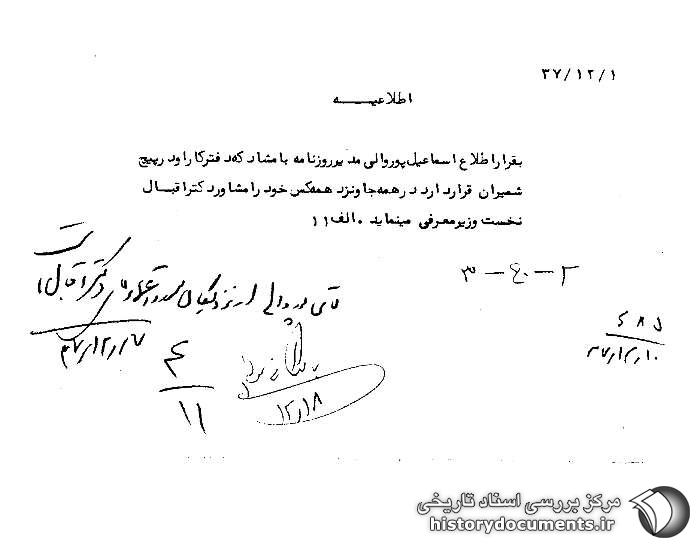 ۳۷/۱۲/۱
اطلاعیـــه
بقرار اطلاع اسماعیل پوروالی مدیر روزنامه بامشاد که دفتر کار او در پیچ
شمیران قرار دارد در همه جا و نزد همه کس خود را مشاور دکتر اقبال
نخست وزیر معرفی مینماید . الف ۱۱
۲ - ۴۰ - ۳
آقای پوروالی از نزدیکان دکتر اقبال است
۳۷/۱۲/۱۷
۴
۱۱
بایگانی
۱۲/۱۸
۳۷/۱۲/۱۰
مرکز بررسی اسناد تاریخی
historydocuments.ir